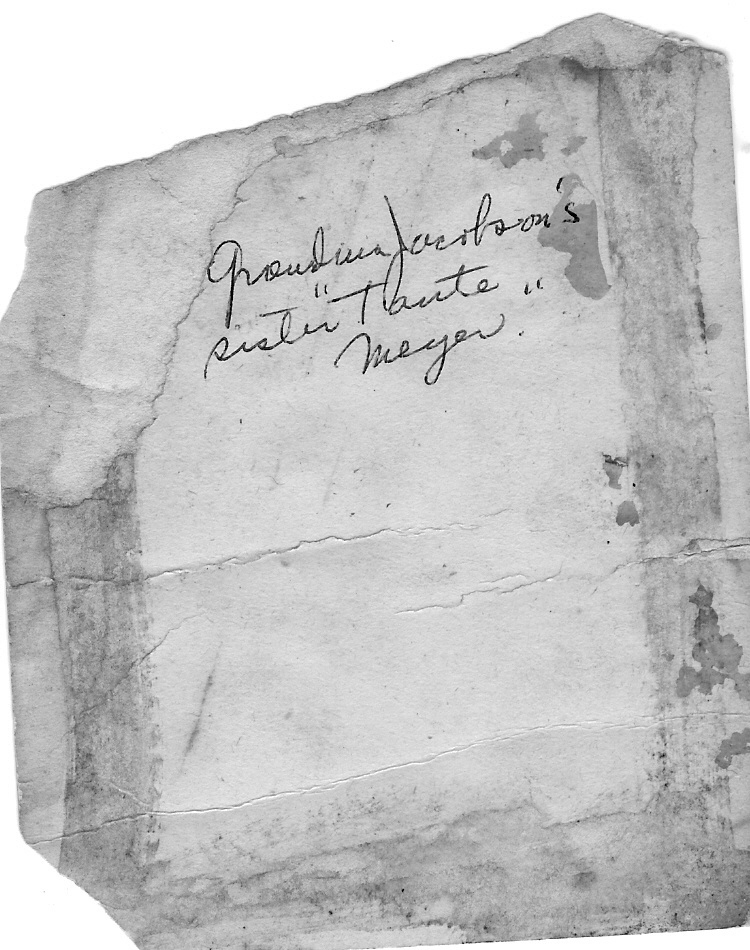 Grandma Jacobson's
sister "Tante"
Meyer.